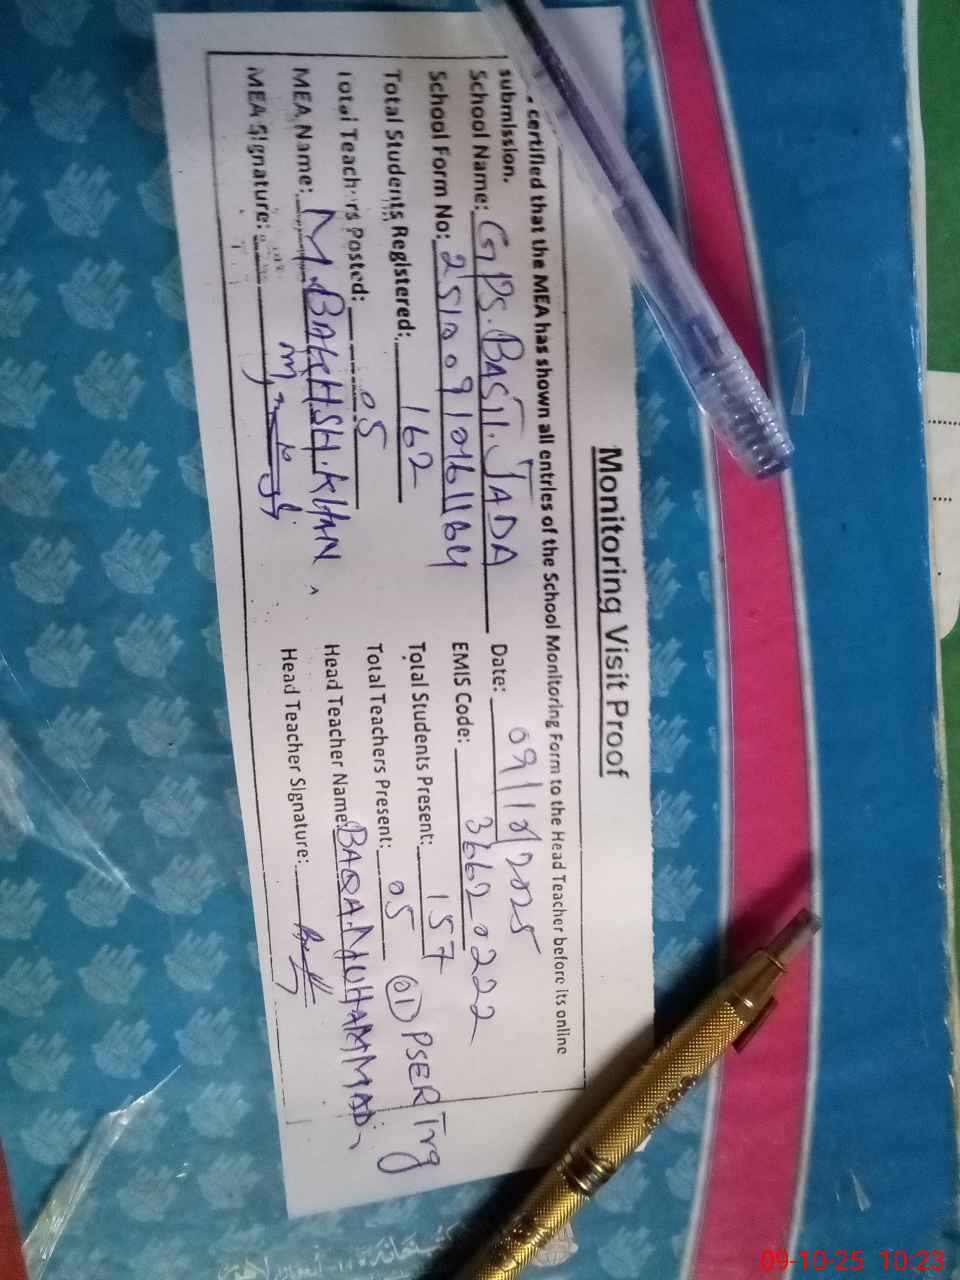 Monitoring Visit Proof
certified that the MEA has shown all entries of the School Monitoring Form to the Head Teacher before its online
submission.
School Name: GPS. BASTI. JADA Date: 09/10/2025
School Form No: EMIS Code: 36620222
Total Students Registered: 162 Total Students Present: 157
Total Teachers Posted: 05 Total Teachers Present: 05 (01) PSER Trg
MEA Name: M. BAKHSH. KHAN Head Teacher Name: BAQA. MUHAMMAD
MEA Signature: Head Teacher Signature:
09-10-25 10:23